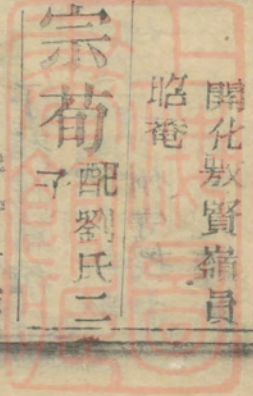 開化教賢嶺員
昭菴
宗荀
配劉氏二
子